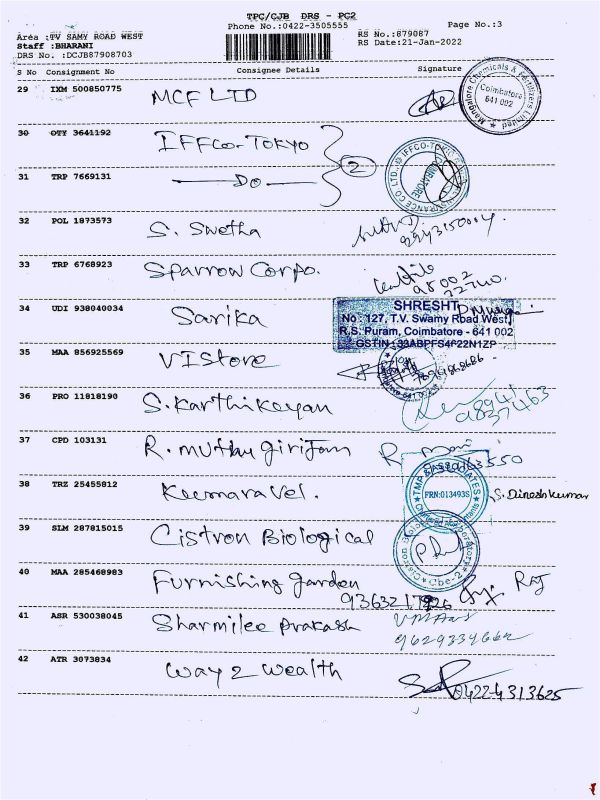 TPC/CJB DRS - PC2
Phone No.:0422-3505555
Page No.:3
Area :TV SAMY ROAD WEST
Staff :BHARANI
DRS No. :DCJB87908703
RS No.:879087
RS Date:21-Jan-2022
S No Consignment No Consignee Details Signature
29 IXM 500850775 MCF LTD
Mangalore Chemicals & Fertilizers Limited
Coimbatore
641 002
30 OTY 3641192 IFFCO-TOKYO
2
31 TRP 7669131 — DO —
32 POL 1873573 S. Swetha
33 TRP 6768923 Sparrow Corpo.
34 UDI 938040034 Sarika
SHRESHT
No : 127, T.V. Swamy Road West,
R.S. Puram, Coimbatore - 641 002
35 MAA 856925569 VIStore
36 PRO 11818190 S. Karthikeyan
37 CPD 103131 R. Muthu Girijam
38 TRZ 25455812 Kumaravel.
FRN:013493S
S. Dinesh kumar
39 SLM 287815015 Cistron Biological
Cbe-2
40 MAA 285468983 Furnishing garden
Raj
41 ASR 530038045 Sharmilee prakash
42 ATR 3073834 Way 2 Wealth
0422-4313625